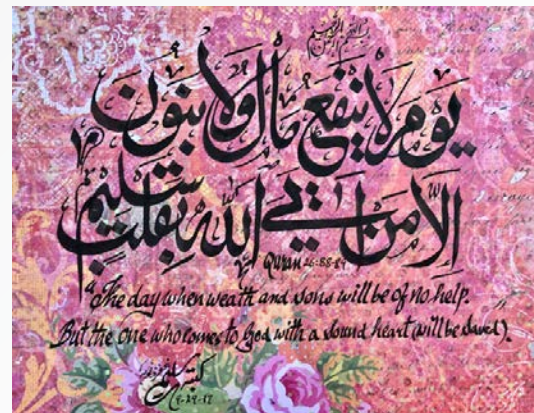 بسم الله الرحمن الرحيم
يَوْمَ لَا يَنْفَعُ مَالٌ وَلَا بَنُونَ
إِلَّا مَنْ أَتَى اللَّهَ بِقَلْبٍ سَلِيمٍ
Quran 26:88-89
"The day when wealth and sons will be of no help.
But the one who comes to God with a sound heart (will be saved)."